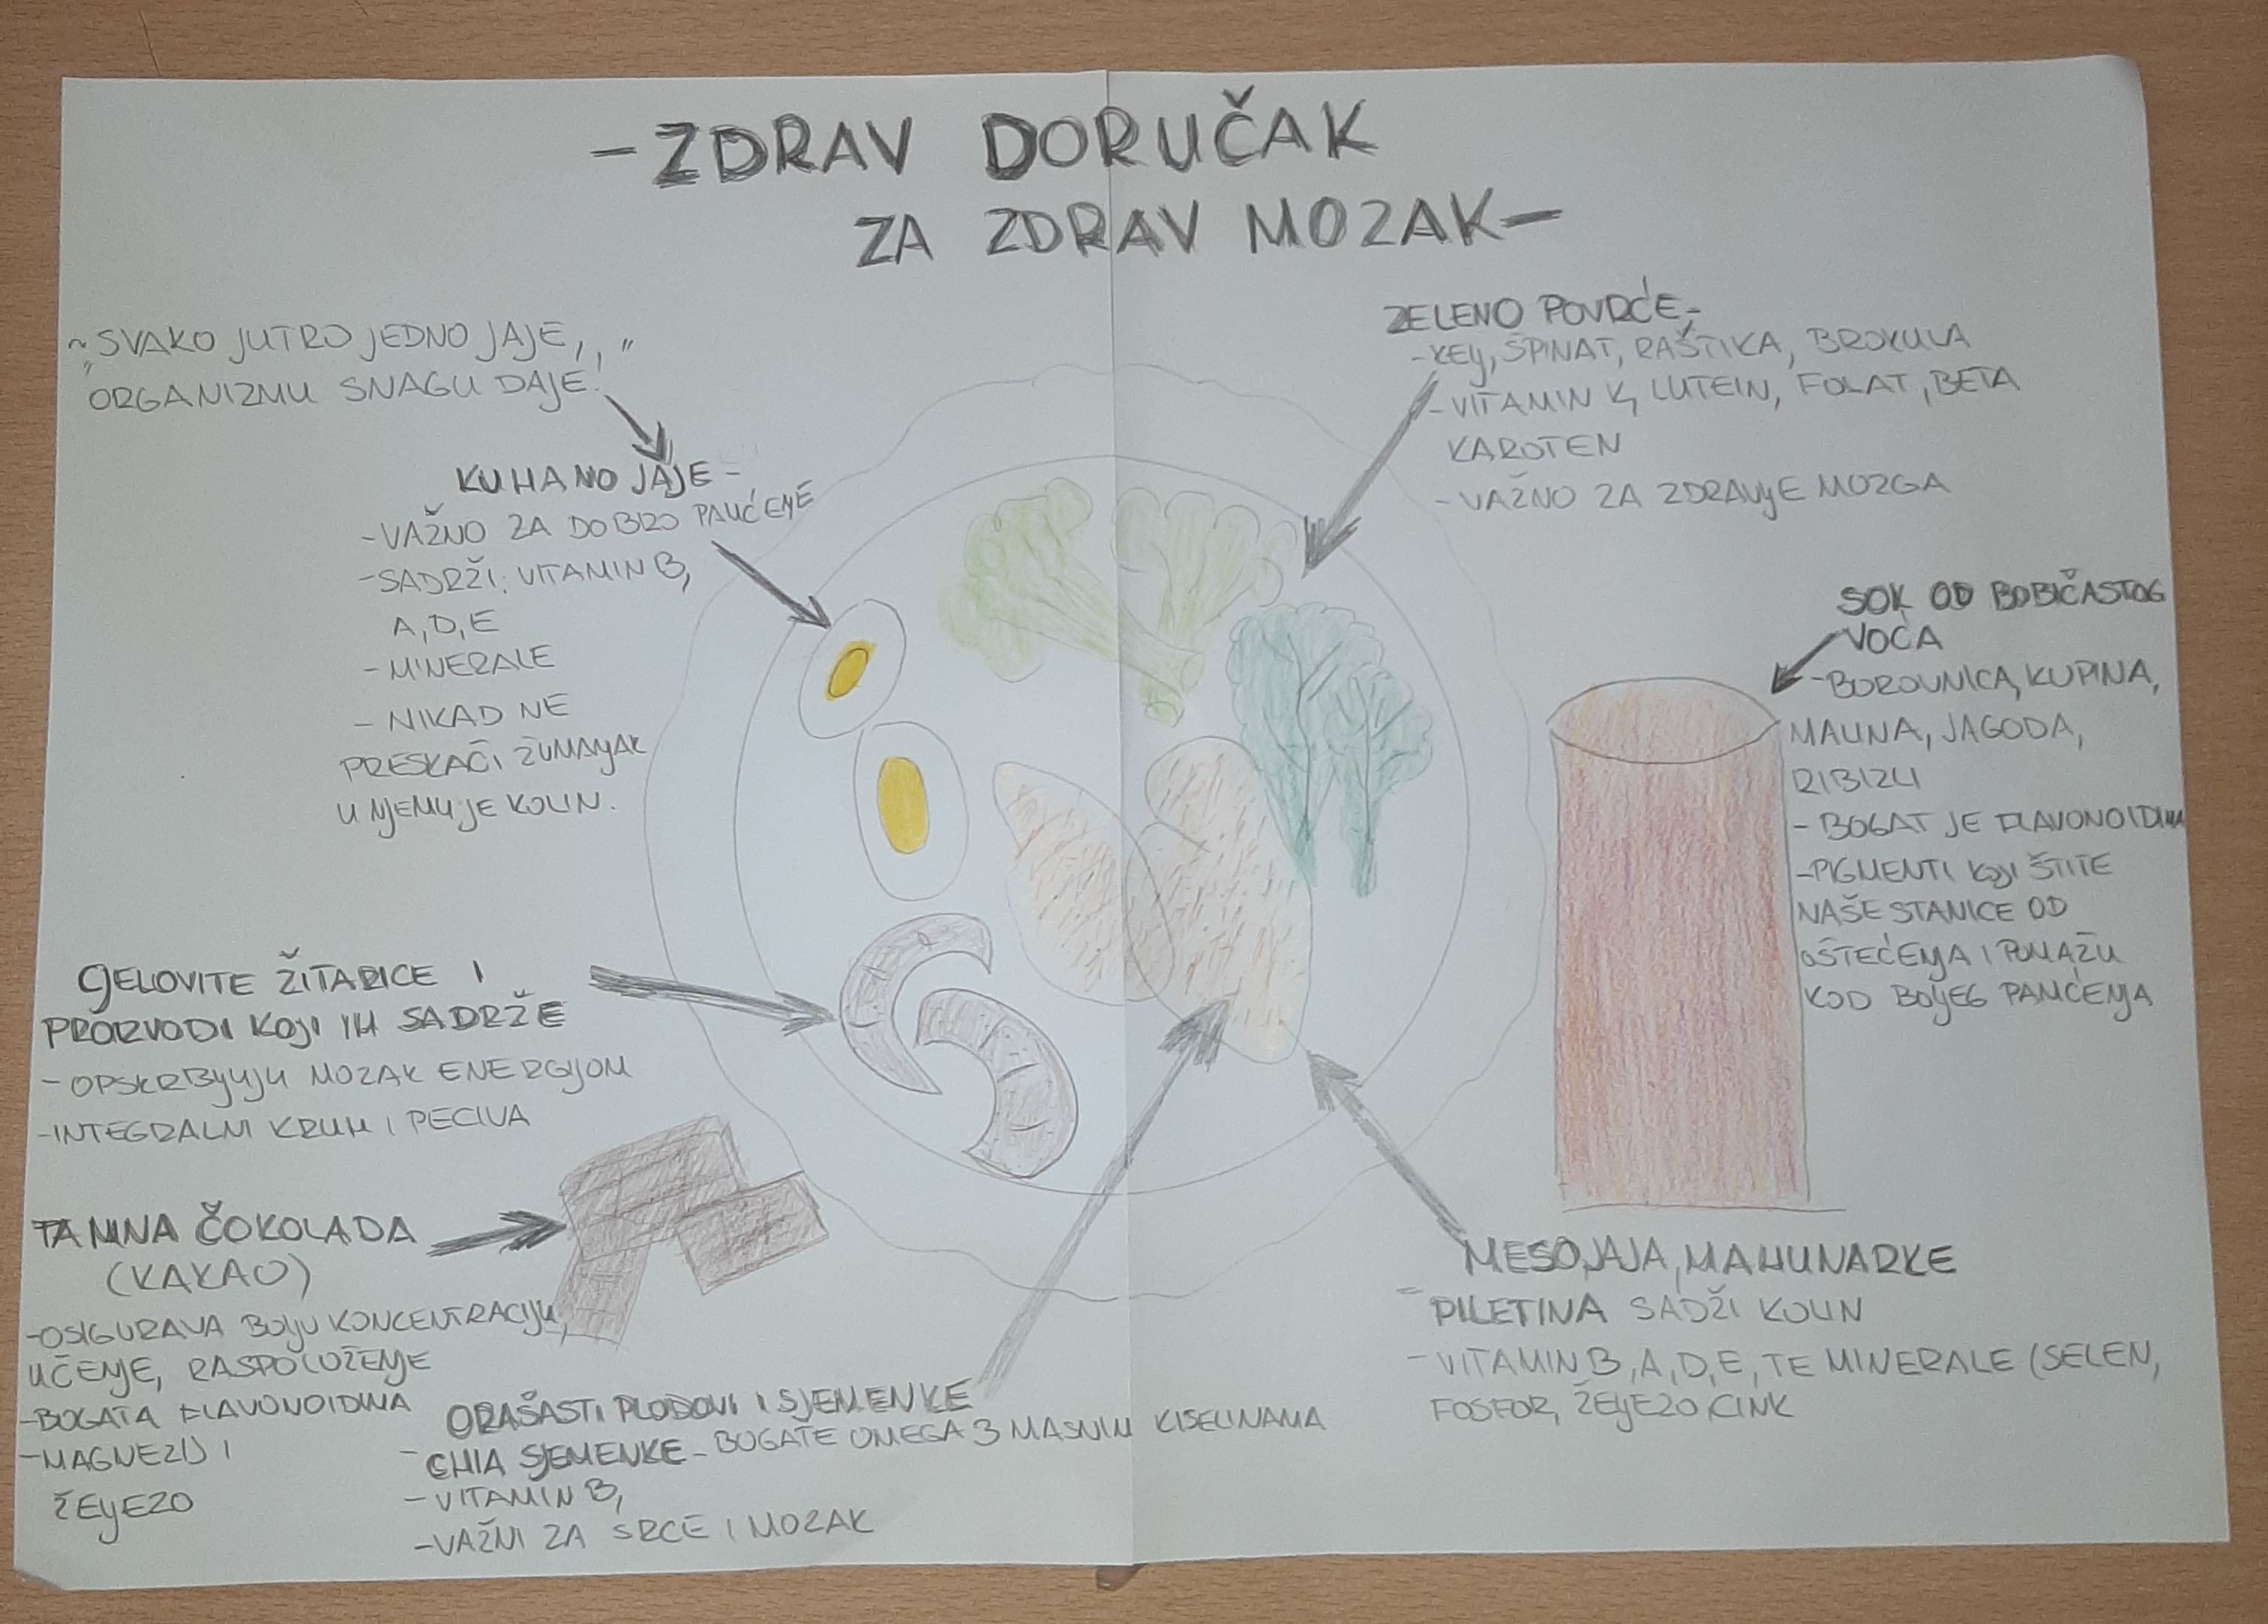 -ZDRAV DORUČAK
ZA ZDRAV MOZAK-
~ SVAKO JUTRO JEDNO JAJE,
"ORGANIZMU SNAGU DAJE!"
KUHANO JAJE-
-VAŽNO ZA DOBRO PAMĆENJE
-SADRŽI: VITAMIN B,
A, D, E
-MINERALE
- NIKAD NE
PRESKAČI ŽUMANJAK
U NJEMU JE KOLIN.
CJELOVITE ŽITARICE I
PROIZVODI KOJI IH SADRŽE
-OPSKRBLJUJU MOZAK ENERGIJOM
-INTEGRALNI KRUH I PECIVA
TAMNA ČOKOLADA
(KAKAO)
-OSIGURAVA BOLJU KONCENTRACIJU,
UČENJE, RASPOLOŽENJE
-BOGATA FLAVONOIDIMA
-MAGNEZIJ I
ŽELJEZO
ORAŠASTI PLODOVI I SJEMENKE
- CHIA SJEMENKE - BOGATE OMEGA 3 MASNIM KISELINAMA
- VITAMIN B,
-VAŽNI ZA SRCE I MOZAK
ZELENO POVRĆE-
-KELJ, ŠPINAT, RAŠTIKA, BROKULA
-VITAMIN K, LUTEIN, FOLAT, BETA
KAROTEN
-VAŽNO ZA ZDRAVLJE MOZGA
SOK OD BOBIČASTOG
VOĆA
-BOROVNICA, KUPINA,
MALINA, JAGODA,
RIBIZLI
- BOGAT JE FLAVONOIDIMA
-PIGMENTI KOJI ŠTITE
NAŠE STANICE OD
OŠTEĆENJA I POMAŽU
KOD BOLJEG PAMĆENJA
MESO, JAJA, MAHUNARKE
- PILETINA SADŽI KOLIN
- VITAMIN B, A, D, E, TE MINERALE (SELEN,
FOSFOR, ŽELJEZO, CINK